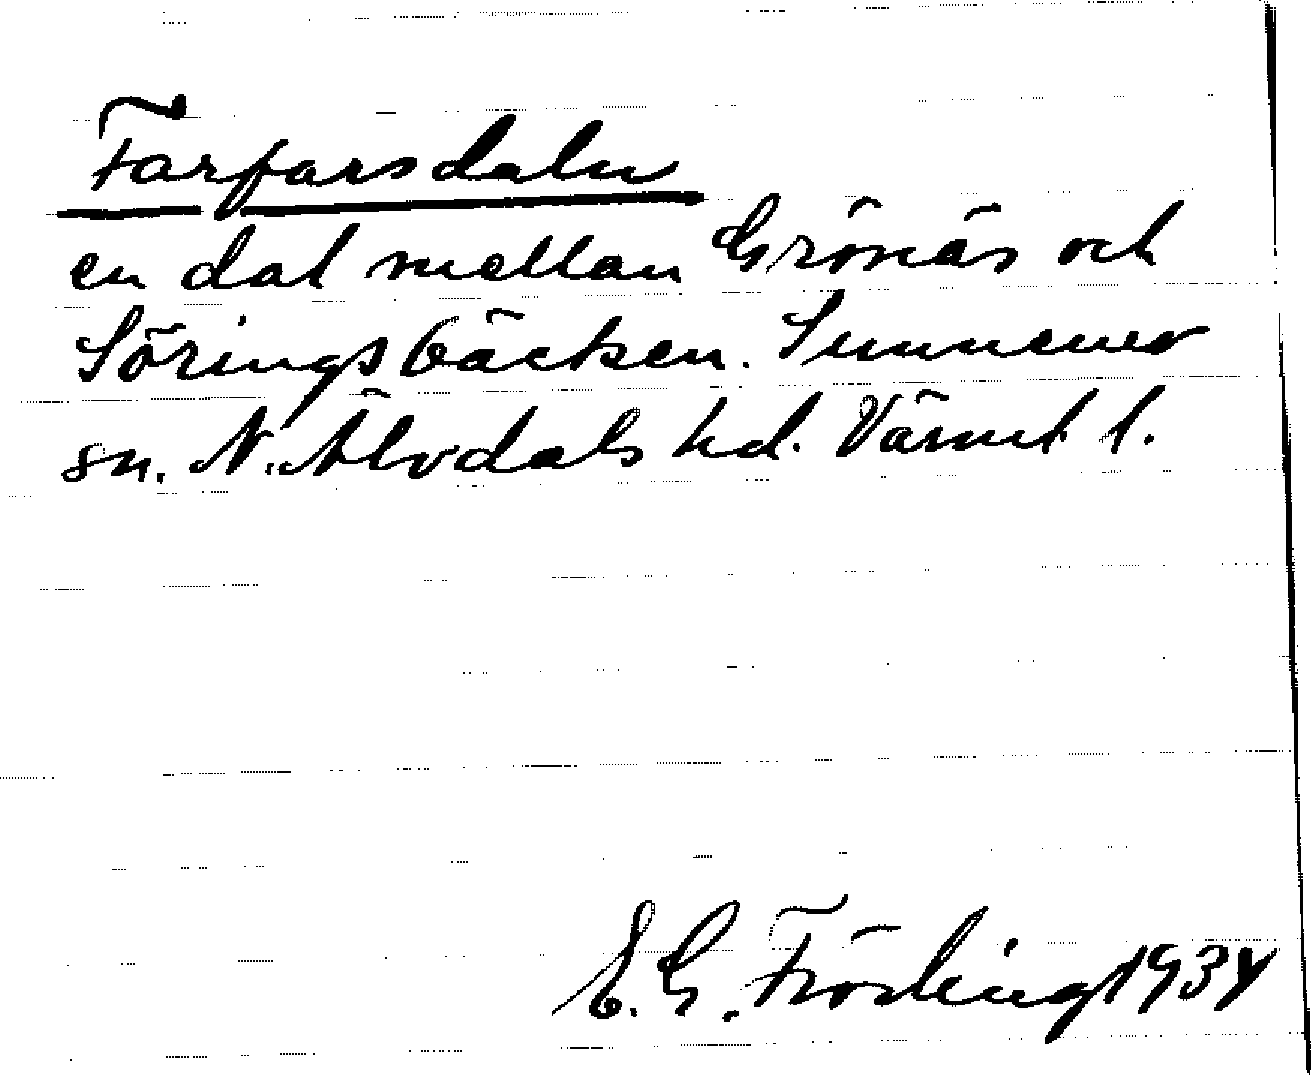 Farfarsdaln
en dal mellan Grönäs och
Söringsbäcken. Sunnemo
sn. N. Älvdals hd. Värml l.
E. G. Fröding 1934